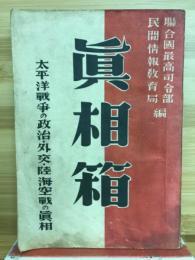 聯合國最高司令部
民間情報敎育局 編
眞相箱
太平洋戰爭の政治・外交・陸海空戰の眞相